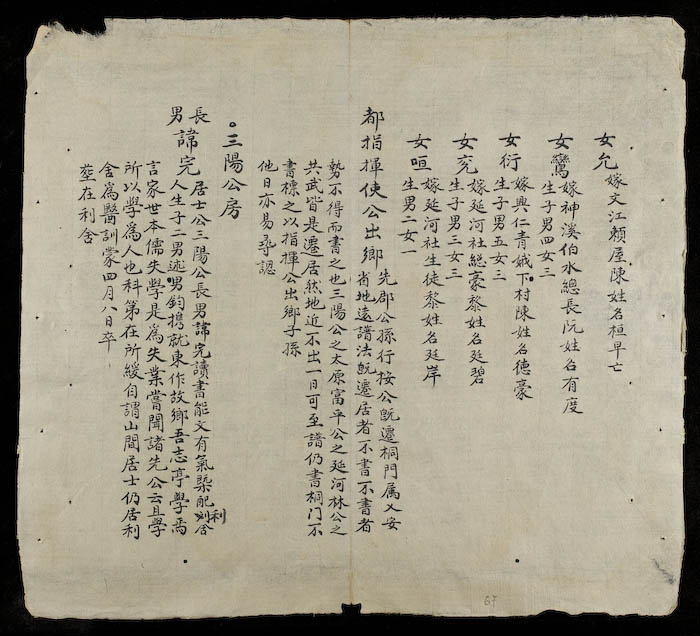 女允 嫁文江賴屋陳姓名桓早亡
女鸞 嫁神溪伯水總長阮姓名有度
生子男四女三
女衍 嫁興仁青娥下村陳姓名德豪
生子男五女三
女兖 嫁延河社總豪黎姓名廷碧
生子男三女三
女咺 嫁延河社生徒黎姓名廷岸
生男二女一
都指揮使公出鄉 先郡公孫行桉公旣遷桐門属乂安
省地遠譜法旣遷居者不書不書者
勢不得而書之也三陽公之太原富平公之延河林公之
共武皆是遷居然地近不出一日可至譜仍書桐门不
書標之以指揮公出鄉子孫
他日亦易尋認
三陽公房
長男諱完 居士公三陽公長男諱完讀書能文有氣槩配利舍
人生子二男述男鈞携就東作故鄉吾志亭學焉
言家世本儒失學是為失業嘗聞諸先公云且學
所以學為人也科第在所緩自謂山間居士仍居利
舍為醫訓蒙四月八日卒
塟在利舍
67